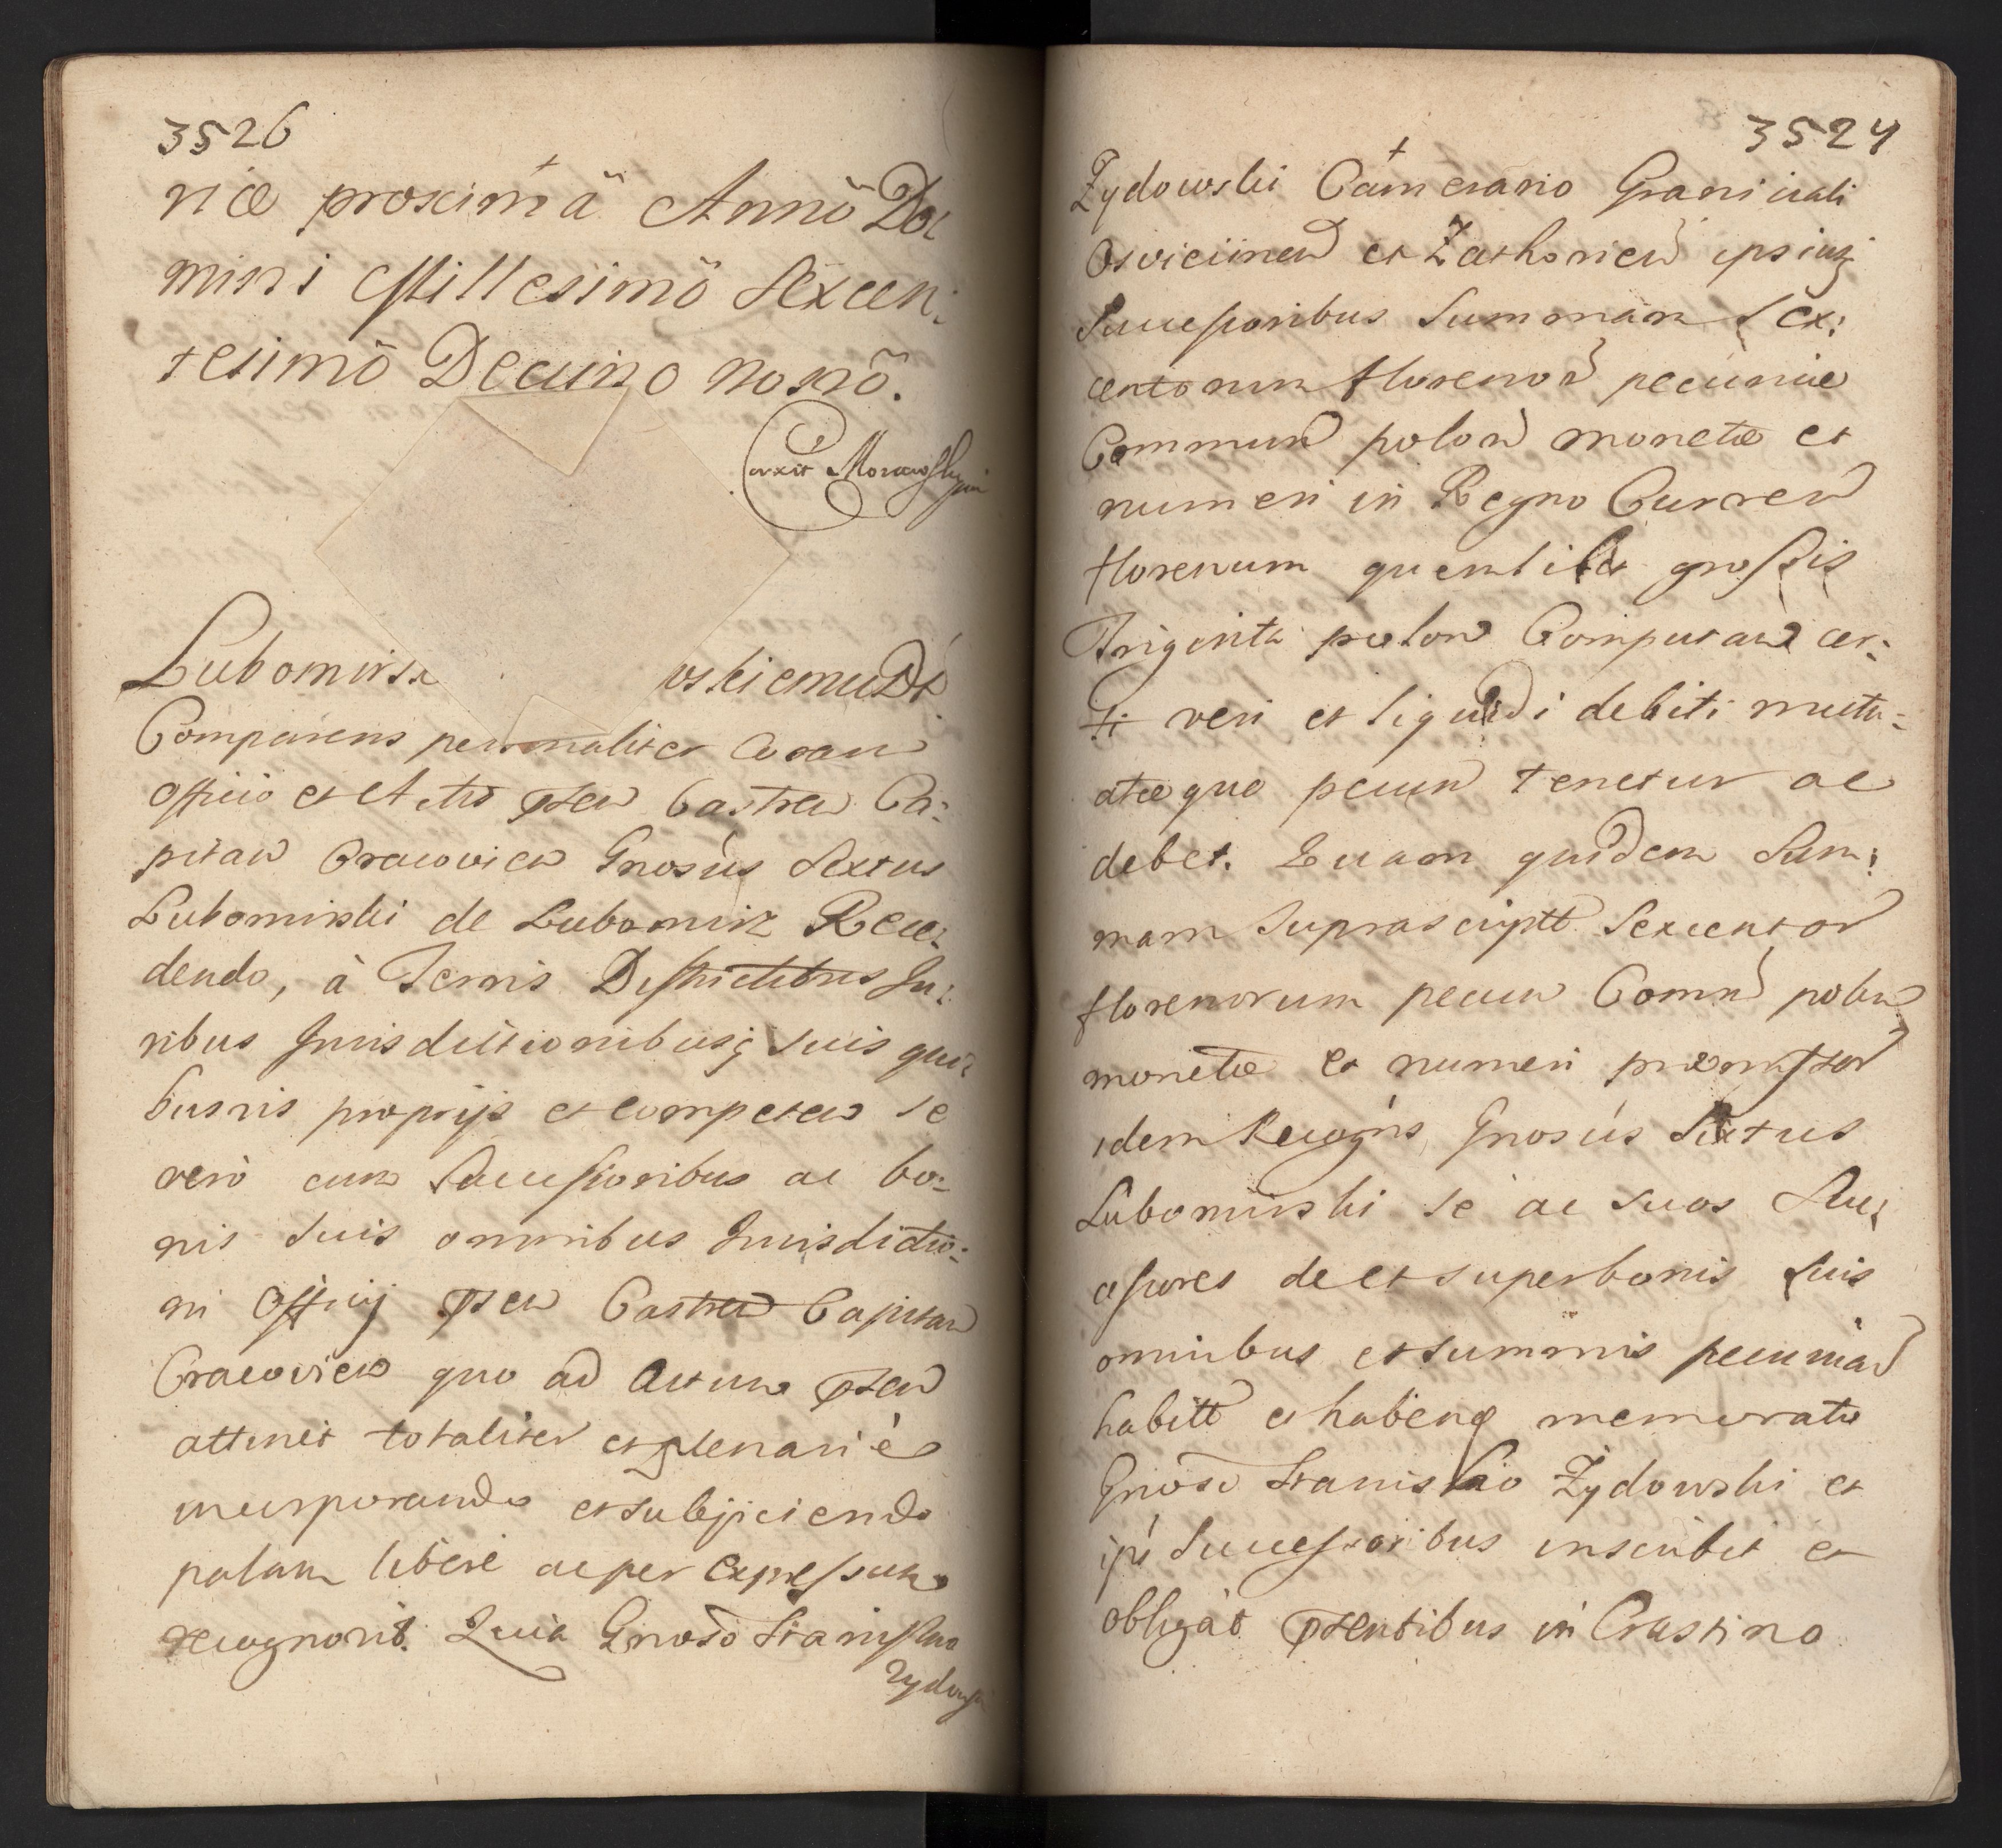 3526
nicæ proximâ Annô Do:
mini Millesimô Sexcen:
tesimô Decimo nonô.
Lubomirs oskiemu Dt
Comparens personaliter coram
officio et Actis pñten Castren Ca:
pitan Cracovien Gnosus Sextus
Lubomirski de Lubomirz Rece:
dendo, à Terris Districtibus Ju:
ribus Jurisdictionibusq suis qui:
busvis proprijs et competen se
verò cum Successoribus ac bo:
nis suis omnibus Jurisdictio:
ni Officij pñten Castren Capitan
Cracovien quo ad Actum pñten
attinet totaliter et plenariè
incorporando et subjiciendo
palam liberè ac per expressum
recognovit. Quia Gnoso Stanislao
Zydowski
3527
Zydowski Camerario Graniciali
Osviecimen et Zathorien ipsiusq
Successoribus Summam Sex:
centorum florenor pecuniæ
Commun polon monetæ et
numeri in Regno Curren
florenum quemlibet grossis
Triginta polon Computan cer:
ti veri et liquidi debiti mutu:
atæque pecun tenetur ac
debet. Quam quidem Sum:
mam suprascriptt Sexcentor
florenorum pecun Commun polon
monetæ et numeri præmissor
idem Recogns Gnosus Sixtus
Lubomirski se ac suos Suc:
cessores de et super bonis suis
omnibus et summis pecuniar
habitt et haben memorato
Gnoso Stanislao Zydowski et
ipś Successoribus inscribit et
obligat pñtentibus in Crastino